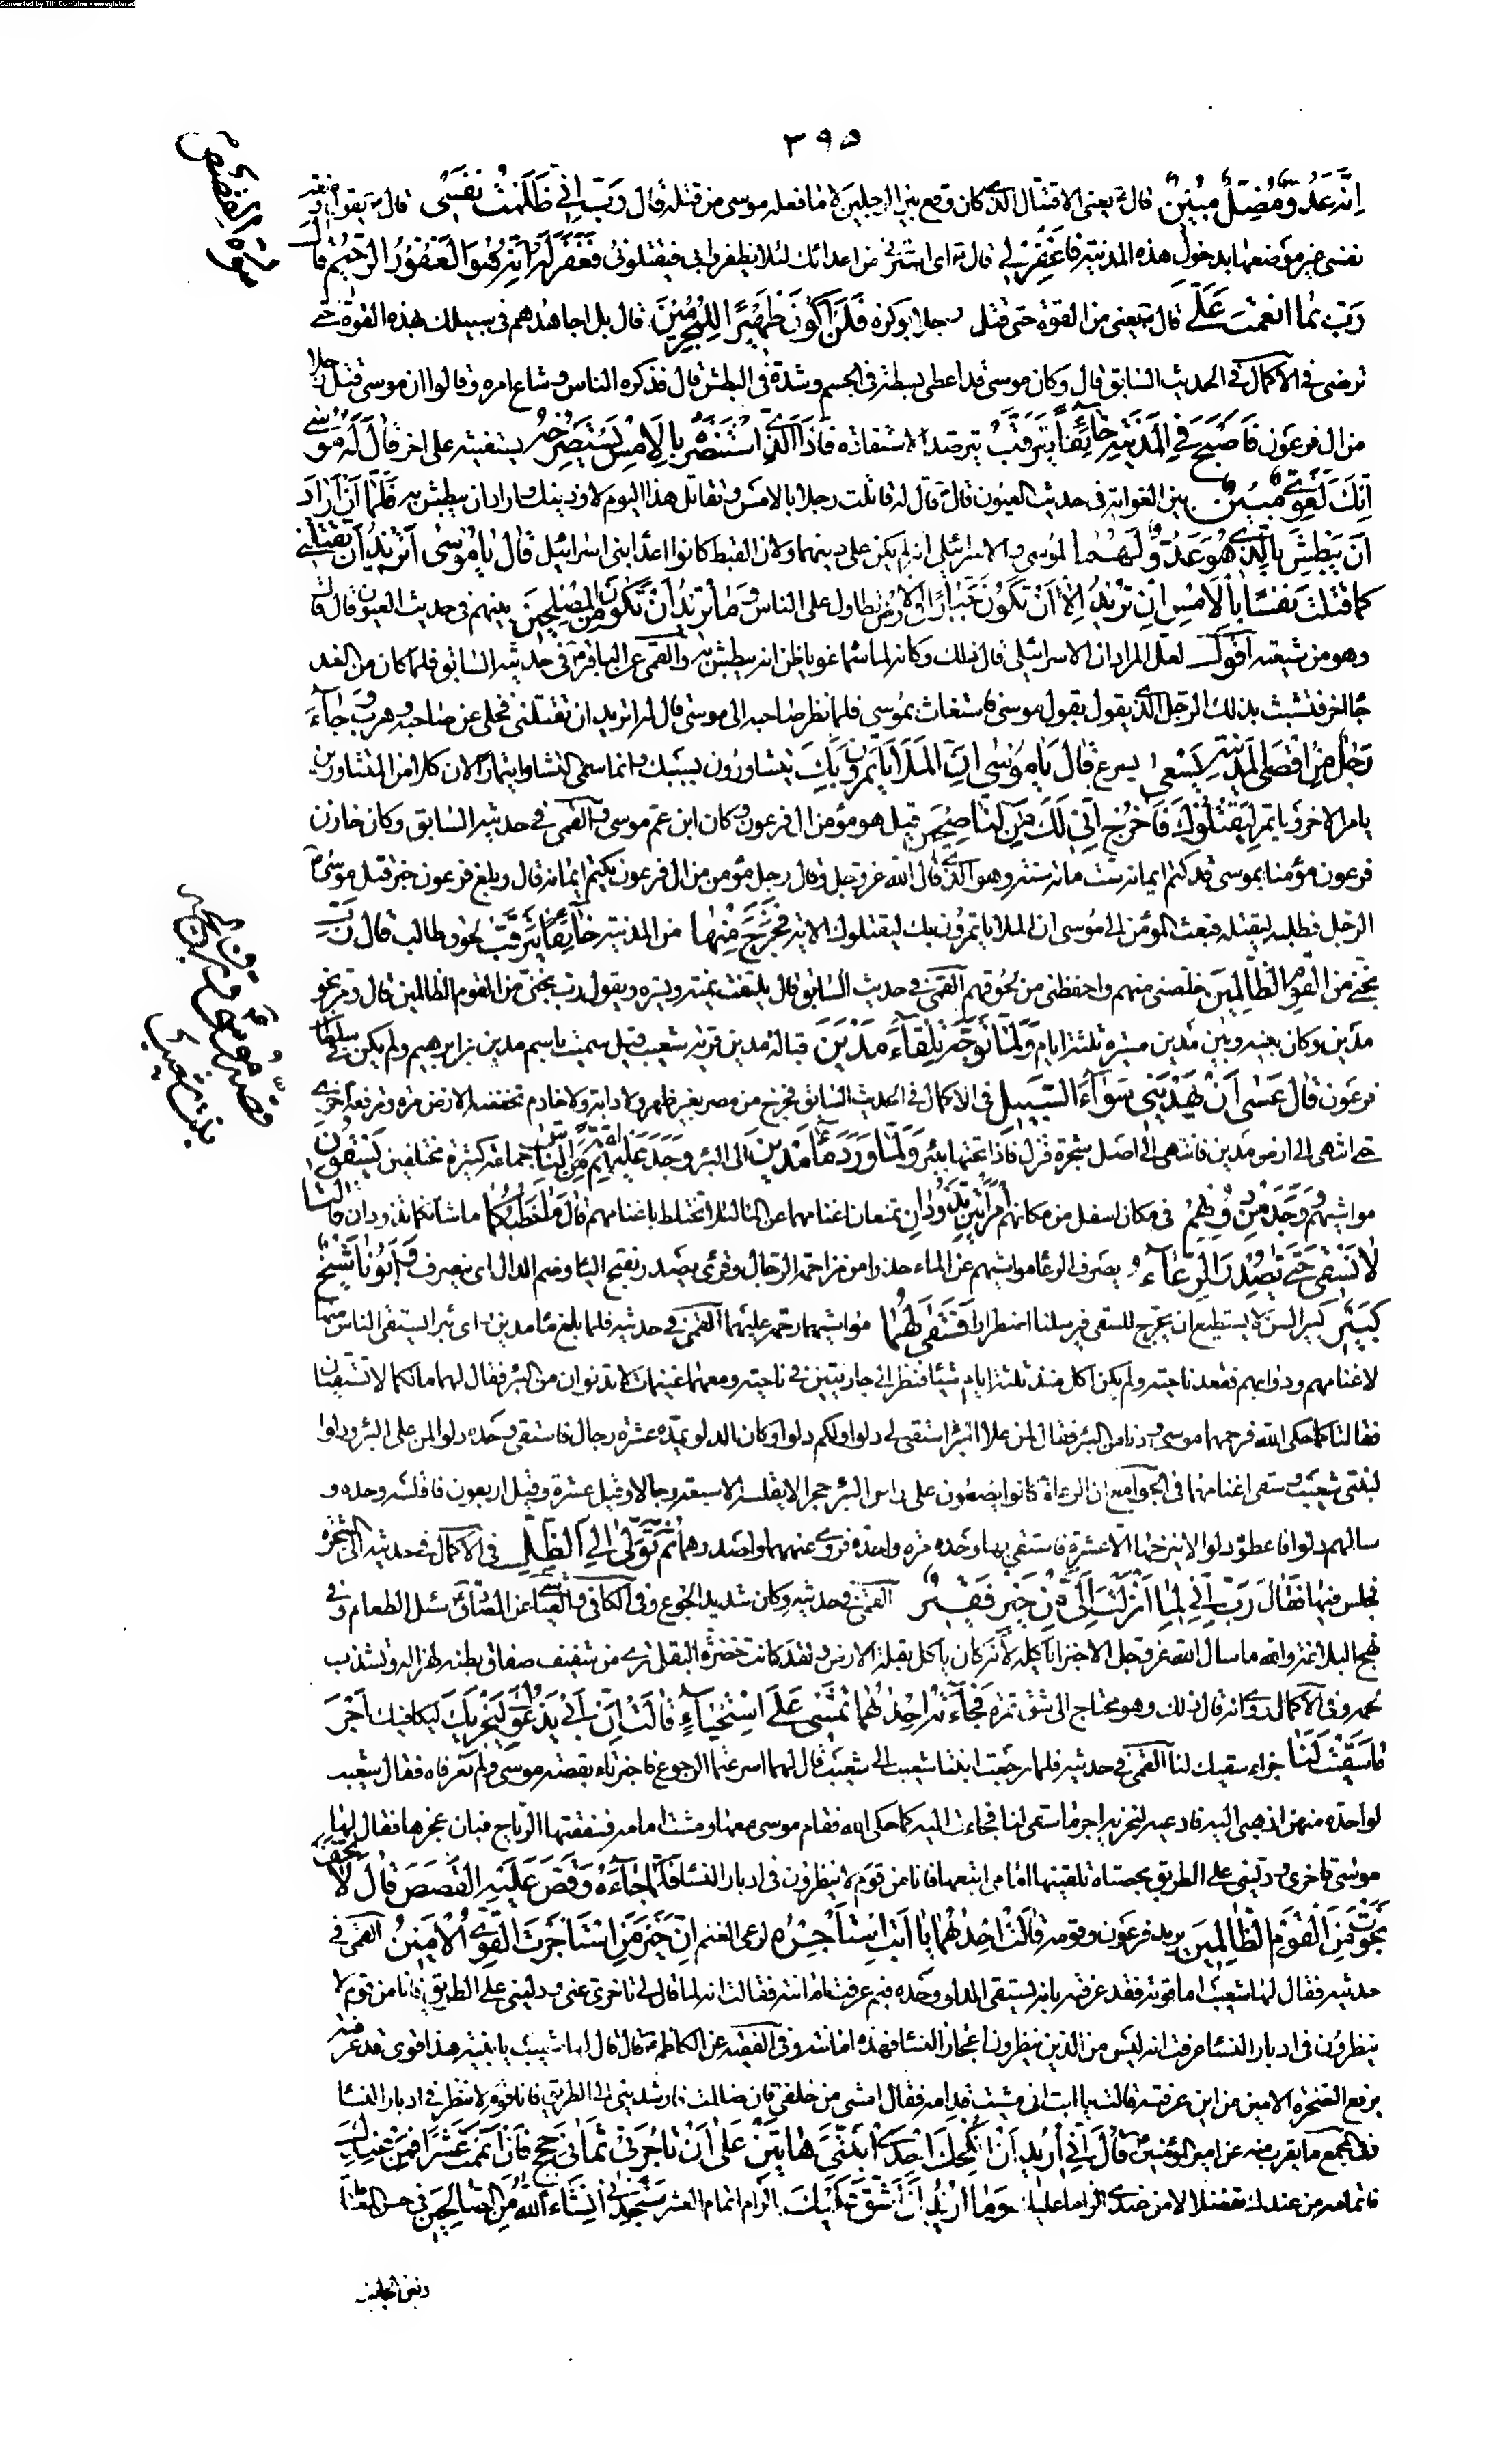 Converted by Tiff Combine - unregistered
٣٩٥
سورة القصص
اِنَّهُ عَدُوٌّ مُضِلٌّ مُبِينٌ قال يعنى الاقتتال الذى كان وقع بين الرجلين لا ما فعله موسى من قتله قال رَبِّ اِنِّى ظَلَمْتُ نَفْسِى قال يقول وضعت
نفسى غير موضعها بدخول هذه المدينة فَاغْفِرْ لِى قال اى استرنى من اعدائك لئلا يظفروا بى فيقتلونى فَغَفَرَ لَهُ اِنَّهُ هُوَ الْغَفُورُ الرَّحِيمُ قال
رَبِّ بِمَا اَنْعَمْتَ عَلَىَّ قال يعنى من القوة حتى قتلت رجلا بوكزة فَلَنْ اَكُونَ ظَهِيرًا لِلْمُجْرِمِينَ قال بل اجاهدهم فى سبيلك بهذه القوة حتى
ترضى فى الاكمال فى الحديث السابق قال وكان موسى قد اعطى بسطة فى الجسم وشدة فى البطش قال فذكره الناس وشاع امره وقالوا ان موسى قتل رجلا
من ال فرعون فَاَصْبَحَ فِى الْمَدِينَةِ خَائِفًا يَتَرَقَّبُ يترصد الاستقادة فَاِذَا الَّذِى اسْتَنْصَرَهُ بِالْاَمْسِ يَسْتَصْرِخُهُ يستغيثه على اخر قَالَ لَهُ مُوسَى
اِنَّكَ لَغَوِىٌّ مُبِينٌ بين الغواية فى حديث العيون قال قال له قاتلت رجلا بالامس وتقاتل هذا اليوم لاوذينك واراد ان يبطش به فَلَمَّا اَنْ اَرَادَ
اَنْ يَبْطِشَ بِالَّذِى هُوَ عَدُوٌّ لَهُمَا لموسى والاسرائيلى انه لم يكن على دينهما ولان القبط كانوا اعداء بنى اسرائيل قَالَ يَا مُوسَى اَتُرِيدُ اَنْ تَقْتُلَنِى
كَمَا قَتَلْتَ نَفْسًا بِالْاَمْسِ اِنْ تُرِيدُ اِلَّا اَنْ تَكُونَ جَبَّارًا فِى الْاَرْضِ تطاول على الناس وَمَا تُرِيدُ اَنْ تَكُونَ مِنَ الْمُصْلِحِينَ بينهم فى حديث العيون قال قال
وهو من شيعته اقول لعل المراد ان الاسرائيلى قال ذلك وكانه لما سماه غويا ظن انه يبطش به والقمى عن الباقر فى حديثه السابق فلما كان من الغد
جاء اخر فتشبث بذلك الرجل الذى يقول بقول موسى فاستغاث بموسى فلما نظر صاحبه الى موسى قال له اتريد ان تقتلنى فخلى عن صاحبه وهرب وَجَاءَ
رَجُلٌ مِنْ اَقْصَى الْمَدِينَةِ يَسْعَى يسرع قَالَ يَا مُوسَى اِنَّ الْمَلَاَ يَاْتَمِرُونَ بِكَ يتشاورون بسببك وانما سمى التشاور ايتمارا لان كلا من المتشاورين
يامر الاخر وياتمر لِيَقْتُلُوكَ فَاخْرُجْ اِنِّى لَكَ مِنَ النَّاصِحِينَ قيل هو مؤمن ال فرعون وكان ابن عم موسى والقمى فى حديثه السابق وكان خازن
فرعون مؤمنا بموسى قد كتم ايمانه ستمائة سنة وهو الذى قال الله عز وجل وقال رجل مؤمن من ال فرعون يكتم ايمانه قال وبلغ فرعون خبر قتل موسى
الرجل فطلبه ليقتله فبعث المؤمن الى موسى ان الملا ياتمرون بك ليقتلوك الاية فَخَرَجَ مِنْهَا من المدينة خَائِفًا يَتَرَقَّبُ لحوق طالب قَالَ رَبِّ
نَجِّنِى مِنَ الْقَوْمِ الظَّالِمِينَ خلصنى منهم واحفظنى من لحوقهم القمى فى حديث السابق قال يلتفت يمنة ويسرة ويقول رب نجنى من القوم الظالمين قال ومر نحو
مدين وكان بينه وبين مدين مسيرة ثلثة ايام وَلَمَّا تَوَجَّهَ تِلْقَاءَ مَدْيَنَ قبالة مدين قرية شعيب قيل سميت باسم مدين بن ابراهيم ولم يكن فى سلطان
فرعون قَالَ عَسَى رَبِّى اَنْ يَهْدِيَنِى سَوَاءَ السَّبِيلِ فى الاكمال فى الحديث السابق فخرج من مصر بغير ظهر ولا دابة ولا خادم تخفضه الارض مرة وترفعه اخرى
حتى انتهى الى ارض مدين فانتهى الى اصل شجرة فنزل فاذا تحتها بئر وَلَمَّا وَرَدَ مَاءَ مَدْيَنَ اى البئر وَجَدَ عَلَيْهِ اُمَّةً مِنَ النَّاسِ جماعة كثيرة مختلفين يَسْقُونَ
مواشيهم وَوَجَدَ مِنْ دُونِهِمُ فى مكان اسفل من مكانهم امْرَاَتَيْنِ تَذُودَانِ تمنعان اغنامهما عن الماء لئلا تختلط باغنامهم قَالَ مَا خَطْبُكُمَا ما شانكما تذودان قَالَتَا
لَا نَسْقِى حَتَّى يُصْدِرَ الرِّعَاءُ يصرف الرعاء مواشيهم عن الماء حذرا من مزاحمة الرجال وقرئ يصدر بفتح الياء وضم الدال اى ينصرف وَاَبُونَا شَيْخٌ
كَبِيرٌ كبير السن لا يستطيع ان يخرج للسقى فيرسلنا اضطرارا فَسَقَى لَهُمَا مواشيهما رحمة عليهما القمى فى حديثه فلما بلغ ماء مدين راى بئرا يستقى الناس منها
لاغنامهم ودوابهم فقعد ناحية ولم يكن اكل منذ ثلثة ايام شيئا فنظر الى جاريتين فى ناحية ومعهما غنيمات لا تدنوان من البئر فقال لهما مالكما لا تستقيان
فقالتا كما حكى الله فرحمهما موسى ودنا من البئر فقال لمن على البئر استقى لى دلوا ولكم دلوا وكان الدلو يمده عشرة رجال فاستقى وحده دلوا لمن على البئر ودلوا
لبنتى شعيب وسقى اغنامهما فى الجوامع ان الرعاة كانوا يضعون على راس البئر حجرا لا يقله الا سبعة رجال وقيل عشرة وقيل اربعون فاقله وحده و
سالهم دلوا فاعطوه دلوا لا ينزحها الا عشرة فاستقى بها وحده مرة واحدة فروى غنمهما واصدرهما ثُمَّ تَوَلَّى اِلَى الظِّلِّ فى الاكمال فى حديثه الى الشجرة
فجلس فيها فَقَالَ رَبِّ اِنِّى لِمَا اَنْزَلْتَ اِلَىَّ مِنْ خَيْرٍ فَقِيرٌ القمى فى حديثه وكان شديد الجوع وفى الكافى والعياشى عن الصادق سئل الطعام وفى
نهج البلاغة والله ما سال الله عز وجل الا خبزا ياكله لانه كان ياكل بقلة الارض ولقد كانت خضرة البقل ترى من شفيف صفاق بطنه لهزاله وتشذب
لحمه وفى الاكمال روى انه قال ذلك وهو محتاج الى شق تمرة فَجَاءَتْهُ اِحْدَاهُمَا تَمْشِى عَلَى اسْتِحْيَاءٍ قَالَتْ اِنَّ اَبِى يَدْعُوكَ لِيَجْزِيَكَ ليكافيك اَجْرَ
مَا سَقَيْتَ لَنَا جزاء سقيك لنا القمى فى حديثه فلما رجعت ابنتا شعيب الى شعيب قال لهما اسرعتما الرجوع فاخبرتاه بقصة موسى ولم تعرفاه فقال شعيب
لواحدة منهن اذهبى اليه فادعيه لنجزيه اجر ما سقى لنا فجاءت اليه كما حكى الله فقام موسى معها ومشت امامه فسفقتها الرياح فبان عجزها فقال لها
موسى تاخرى ودلينى على الطريق بحصاة تلقينها امامى اتبعها فانا من قوم لا ينظرون فى ادبار النساء فَلَمَّا جَاءَهُ وَقَصَّ عَلَيْهِ الْقَصَصَ قَالَ لَا تَخَفْ
نَجَوْتَ مِنَ الْقَوْمِ الظَّالِمِينَ يريد فرعون وقومه قَالَتْ اِحْدَاهُمَا يَا اَبَتِ اسْتَاْجِرْهُ لرعى الغنم اِنَّ خَيْرَ مَنِ اسْتَاْجَرْتَ الْقَوِىُّ الْاَمِينُ القمى فى
حديثه فقال لها شعيب اما قوته فقد عرفته بانه يستقى الدلو وحده فبم عرفت امانته فقالت انه لما قال لى تاخرى عنى ودلينى على الطريق فانا من قوم لا
ينظرون فى ادبار النساء عرفت انه ليس من الذين ينظرون اعجاز النساء فهذه امانته وفى الفقيه عن الكاظم قال قال لها شعيب يا بنية هذا قوى قد عرفته
برفع الصخرة الامين من اين عرفته قالت يا ابت انى مشيت قدامه فقال امشى من خلفى فان ضللت فارشدينى الى الطريق فانا قوم لا ننظر فى ادبار النساء
وفى المجمع ما يقرب منه عن امير المؤمنين قَالَ اِنِّى اُرِيدُ اَنْ اُنْكِحَكَ اِحْدَى ابْنَتَىَّ هَاتَيْنِ عَلَى اَنْ تَاْجُرَنِى ثَمَانِىَ حِجَجٍ فَاِنْ اَتْمَمْتَ عَشْرًا فَمِنْ عِنْدِكَ
فاتمامه من عندك تفضلا لا من عندى الزاما عليك وَمَا اُرِيدُ اَنْ اَشُقَّ عَلَيْكَ بالزام اتمام العشر سَتَجِدُنِى اِنْ شَاءَ اللَّهُ مِنَ الصَّالِحِينَ فى حسن المعاملة